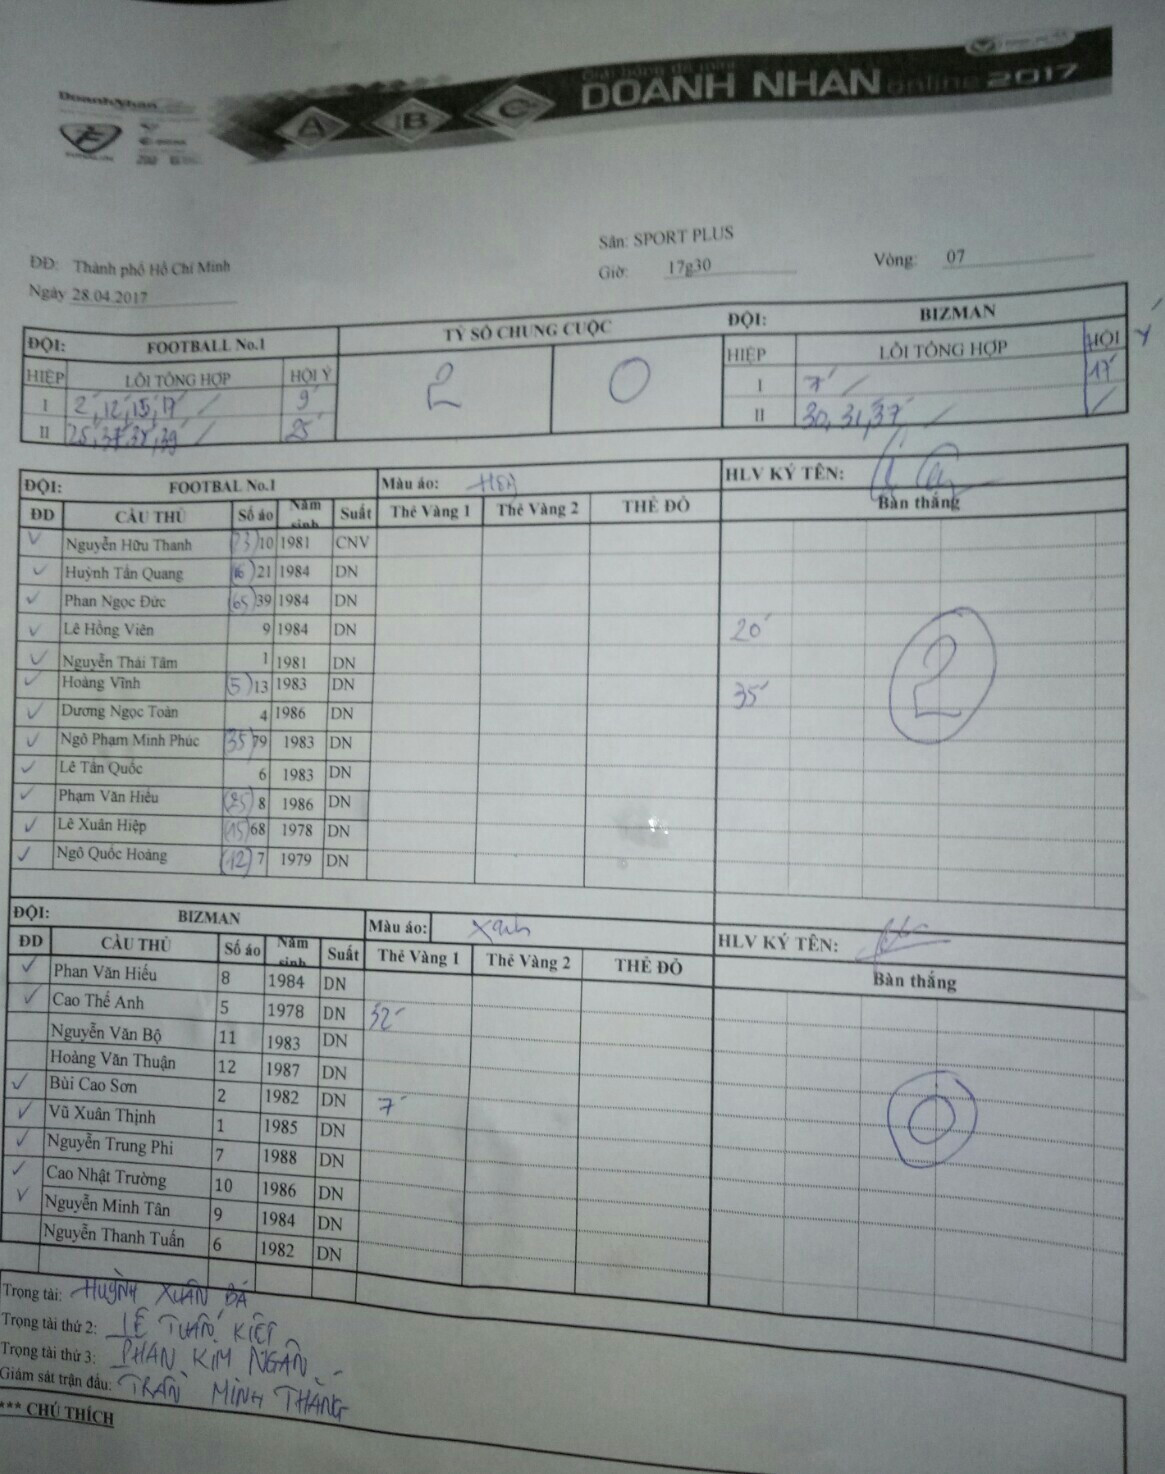 DoanhNhan
A B C
Giải bóng đá mini
DOANH NHAN online 2017
ĐĐ: Thành phố Hồ Chí Minh
Sân: SPORT PLUS
Ngày 28.04.2017
Giờ: 17g30 Vòng: 07
ĐỘI: FOOTBALL No.1 TỶ SỐ CHUNG CUỘC ĐỘI: BIZMAN
HIỆP LỖI TỔNG HỢP HỘI Ý 2 0 HIỆP LỖI TỔNG HỢP HỘI Ý
I 2', 12', 15', 17' 9' I 7' 17'
II 25', 37', 39' 25' II 30, 31, 37'
ĐỘI: FOOTBAL No.1 Màu áo: HLV KÝ TÊN:
ĐD CẦU THỦ Số áo Năm sinh Suất Thẻ Vàng 1 Thẻ Vàng 2 THẺ ĐỎ Bàn thắng
Nguyễn Hữu Thanh 10 1981 CNV
Huỳnh Tấn Quang (16) 21 1984 DN
Phan Ngọc Đức (65) 39 1984 DN
Lê Hồng Viên 9 1984 DN 20'
Nguyễn Thái Tâm 1 1981 DN
Hoàng Vĩnh (5) 13 1983 DN 35'
2
Dương Ngọc Toàn 4 1986 DN
Ngô Phạm Minh Phúc (35) 79 1983 DN
Lê Tấn Quốc 6 1983 DN
Phạm Văn Hiếu (25) 8 1986 DN
Lê Xuân Hiệp (15) 68 1978 DN
Ngô Quốc Hoàng (12) 7 1979 DN
ĐỘI: BIZMAN Màu áo: Xanh HLV KÝ TÊN:
ĐD CẦU THỦ Số áo Năm sinh Suất Thẻ Vàng 1 Thẻ Vàng 2 THẺ ĐỎ Bàn thắng
Phan Văn Hiếu 8 1984 DN
Cao Thế Anh 5 1978 DN 32'
Nguyễn Văn Bộ 11 1983 DN
Hoàng Văn Thuận 12 1987 DN
Bùi Cao Sơn 2 1982 DN 7'
0
Vũ Xuân Thịnh 1 1985 DN
Nguyễn Trung Phi 7 1988 DN
Cao Nhật Trường 10 1986 DN
Nguyễn Minh Tân 9 1984 DN
Nguyễn Thanh Tuấn 6 1982 DN
Trọng tài: HUỲNH XUÂN BÁ
Trọng tài thứ 2: LÊ TUẤN KIỆT
Trọng tài thứ 3: PHAN KIM NGÂN
Giám sát trận đấu: TRẦN MINH THẮNG
*** CHÚ THÍCH